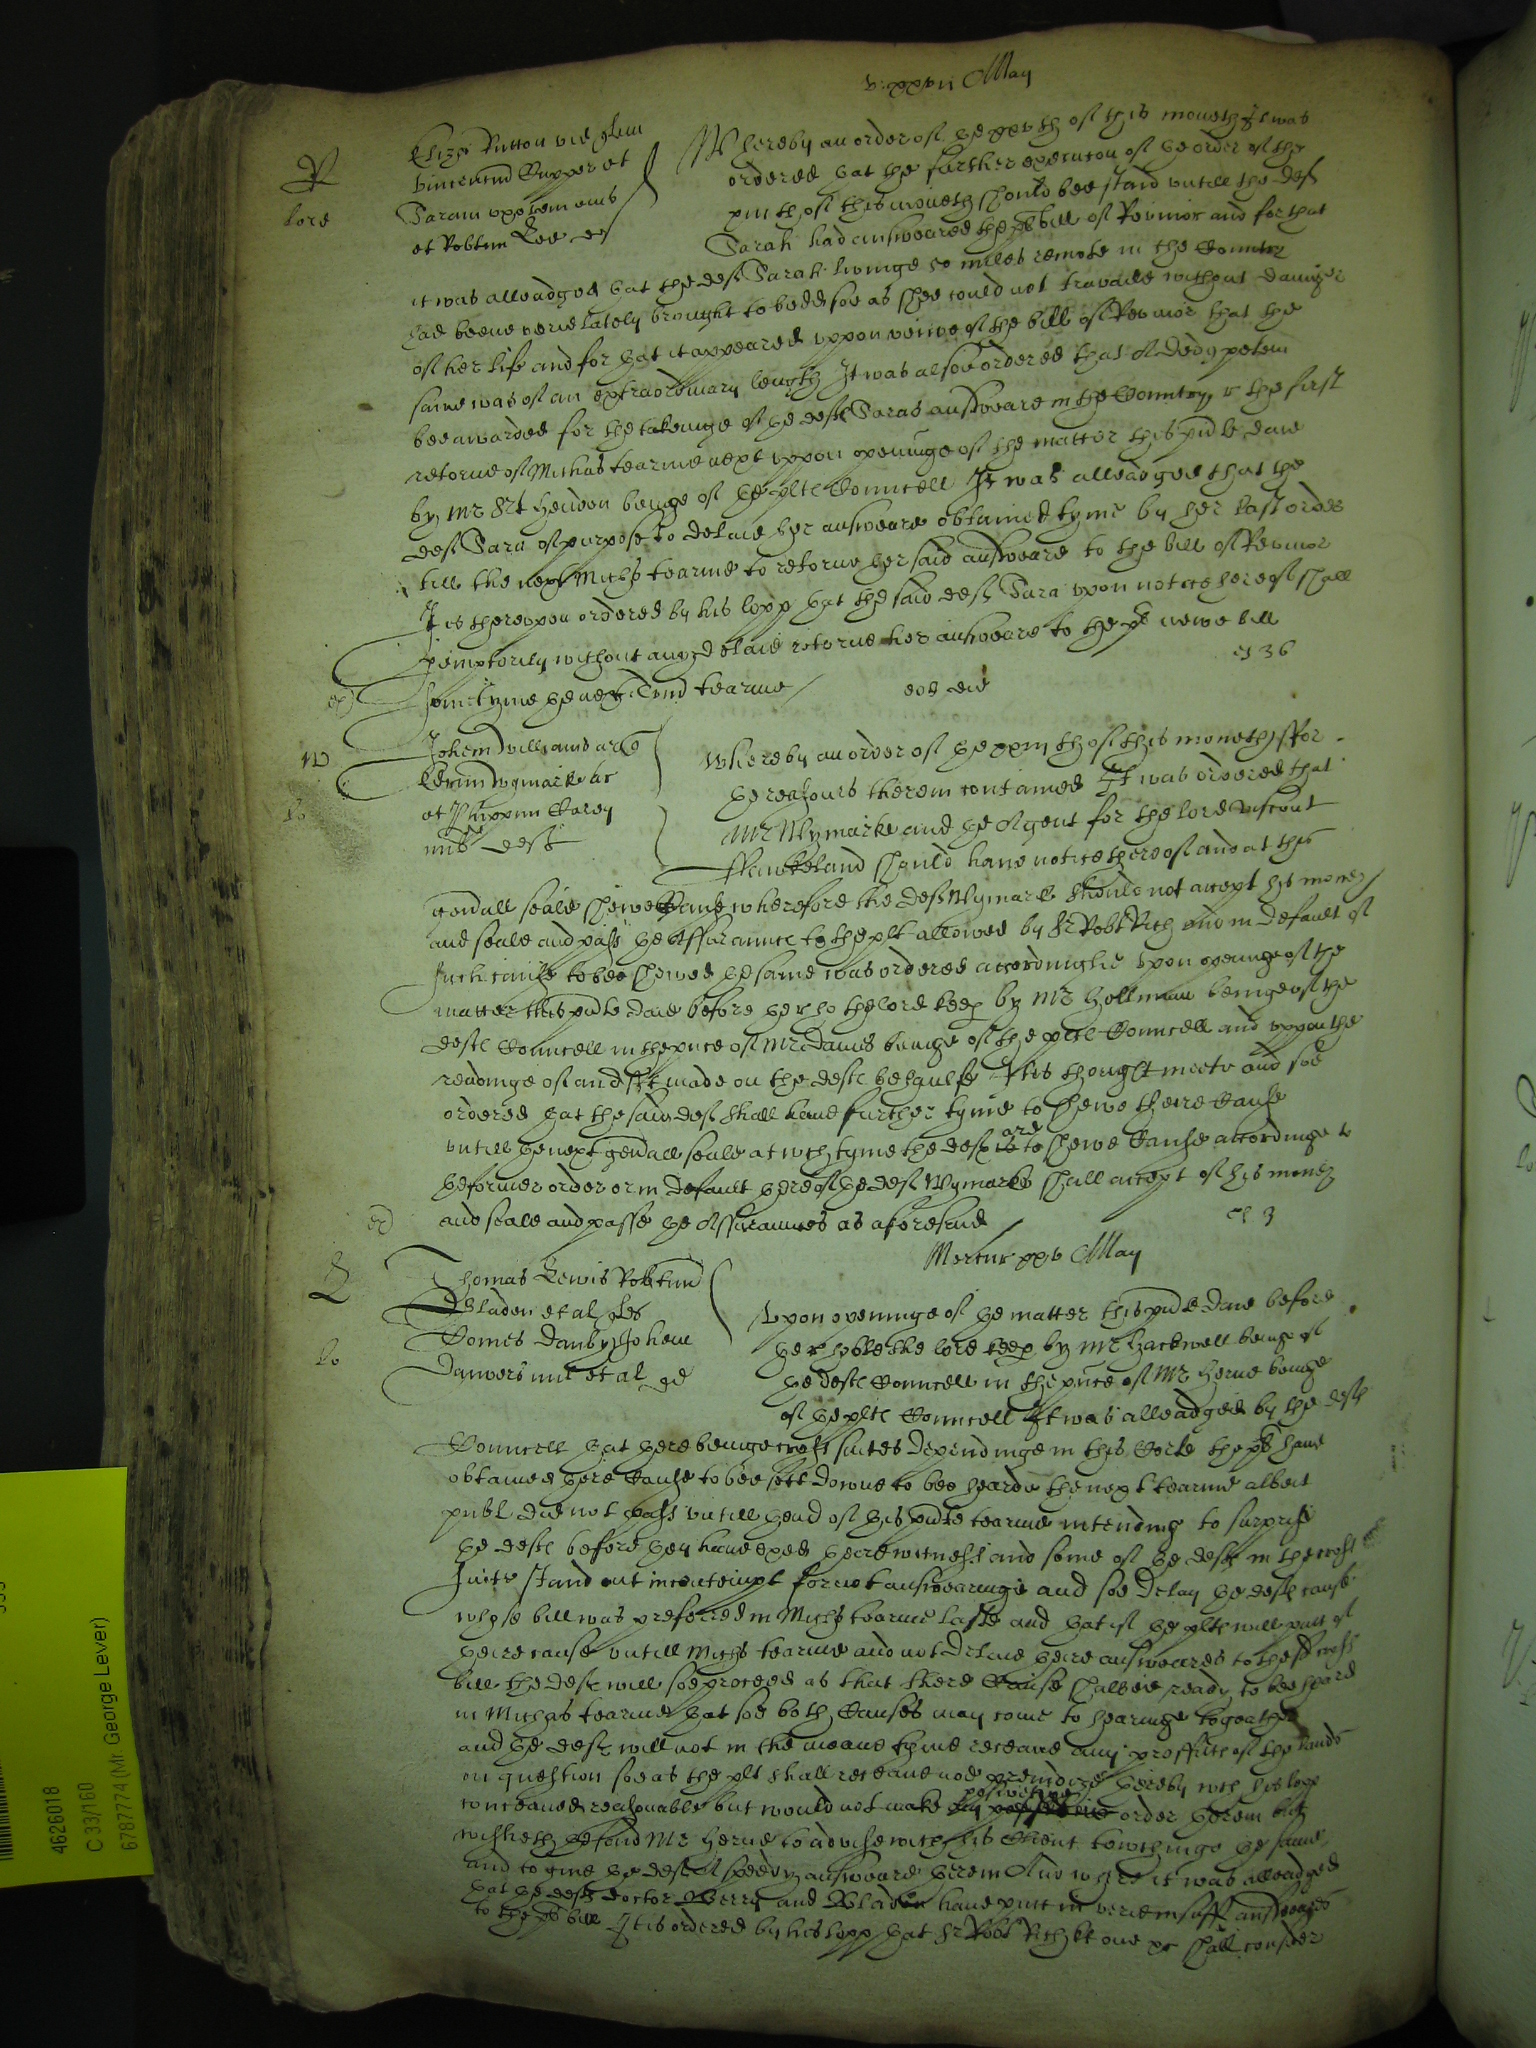 v: xxvii May
R
lord
Eliza Dutton vid quer
Vincentius Cupper et
Saram uxorem eius
et Robtum Lee def
Whereby an order of the xxvth of this moneth It was
ordered that the further execucon of the order of the
xiiith of this moneth should bee staid untill the def
Sarah had answeared the pls bill of Revivor and for that
it was alleadged that the def Sarah livinge 50 miles remote in the Countrie
had beene verie lately brought to bedd soe as shee could not travaile without daunger
of her life and for that it appeared uppon veiwe of the bill of Revivor that the
same was of an extraordinary length It was alsoe ordered that A dedg potem
bee awarded for the takeinge of the deftes Saras answeare in the Country r the first
retorne of Michas tearme next uppon openinge of the matter this pnte daie
by Mr Srt Hendon beinge of the pltes Councell It was alleadged that the
def Sara of purpose to delaie her answeare obtained tyme by her last order
till the next Michs tearme to retorne her said answeare to the bill of Revivor
It is thereupon ordered by his lopp that the said deft Sara upon notice hereof shall
pemptorily without any delaie retorne her answeare to the pls newe bill
sometyme the next Trin tearme /
eod die
36
W
Johem Williams
Edrum Wymarke
et Phippum Carey
mil deft
Whereby an order of the xxiiith of this moneth ffor
the reasons therein contained It was ordered that
Mr Wymarke and the Agent for the lord viscount
ffawkeland should have notice thereof and at this
gendall seale shewe Cause wherefore the def Wymark should not accept his money
and seale and pass the Assurance to the plt allowed by Sr Robt Rich and in default of
such cause to bee shewed the same was ordered accordinglie Upon openinge of the
matter this pnte daie before the r: ho: the lord keep by Mr Hollman beinge of the
deftes Councell in the pnce of Mr Davis beinge of the pltes Councell and uppon the
readinge of an afft made on the deftes behaulfe It is thought meete and soe
ordered that the said def shall have further tyme to shewe theire Cause
untill the next gendall seale at wch tyme the deftes is are to shewe Cause accordinge to
the former order or in default thereof the def Wymarke shall accept of his money
and seale and passe the Assurances as aforesaid /
3
Mercur xxv May
L
Thomas Lewis Robtum
Bladen et al ples
Comes Danby Johem
Danvers mil et al de
Upon openinge of the matter this pnte daie before
the r hoble the lord keep by Mr Hackwell beinge of
the deftes Councell in the pnce of Mr Herne beinge
of the pltes Councell It was alleadged by the deftes
Councell that there beinge cross suites dependinge in this Corte the pls have
obtained there Cause to bee sett downe to bee heard the next tearme albeit
publ did not pass untill thend of this pnte tearme intending to surprise
the deftes before they have exed theire witness and some of the deftes in the cross
suite stand out in contempt for not answearinge and soe delay the deftes cause
whose bill was preferred in Michs tearme laste and that if the pltes will putt of
theire cause untill Michs tearme and not delaie theire answeares to the sd cross
bill the deftes will soe proceed as that there Cause shalbee ready to bee heard
in Michas tearme that soe both Causes may come to hearinge togeather
and the deftes will not in the meane tyme receave any proffitte of the lands
in question soe as the plt shall receave noe prejudize thereby wch his lopp
conceaved reasonable but would not make any positive order herein but
wisheth the said Mr Herne to advise with his Client touchinge the same
and to give the deftes A speedy answeare therein And where it was alleadged
that the deftes doctor Merry and Bladen have putt in verie insuff answeares
to the pls bill It is ordered by his lopp that Sr Robt Rich kt one &c shall consider
4626018
C 33/160
6787774 (Mr George Lever)